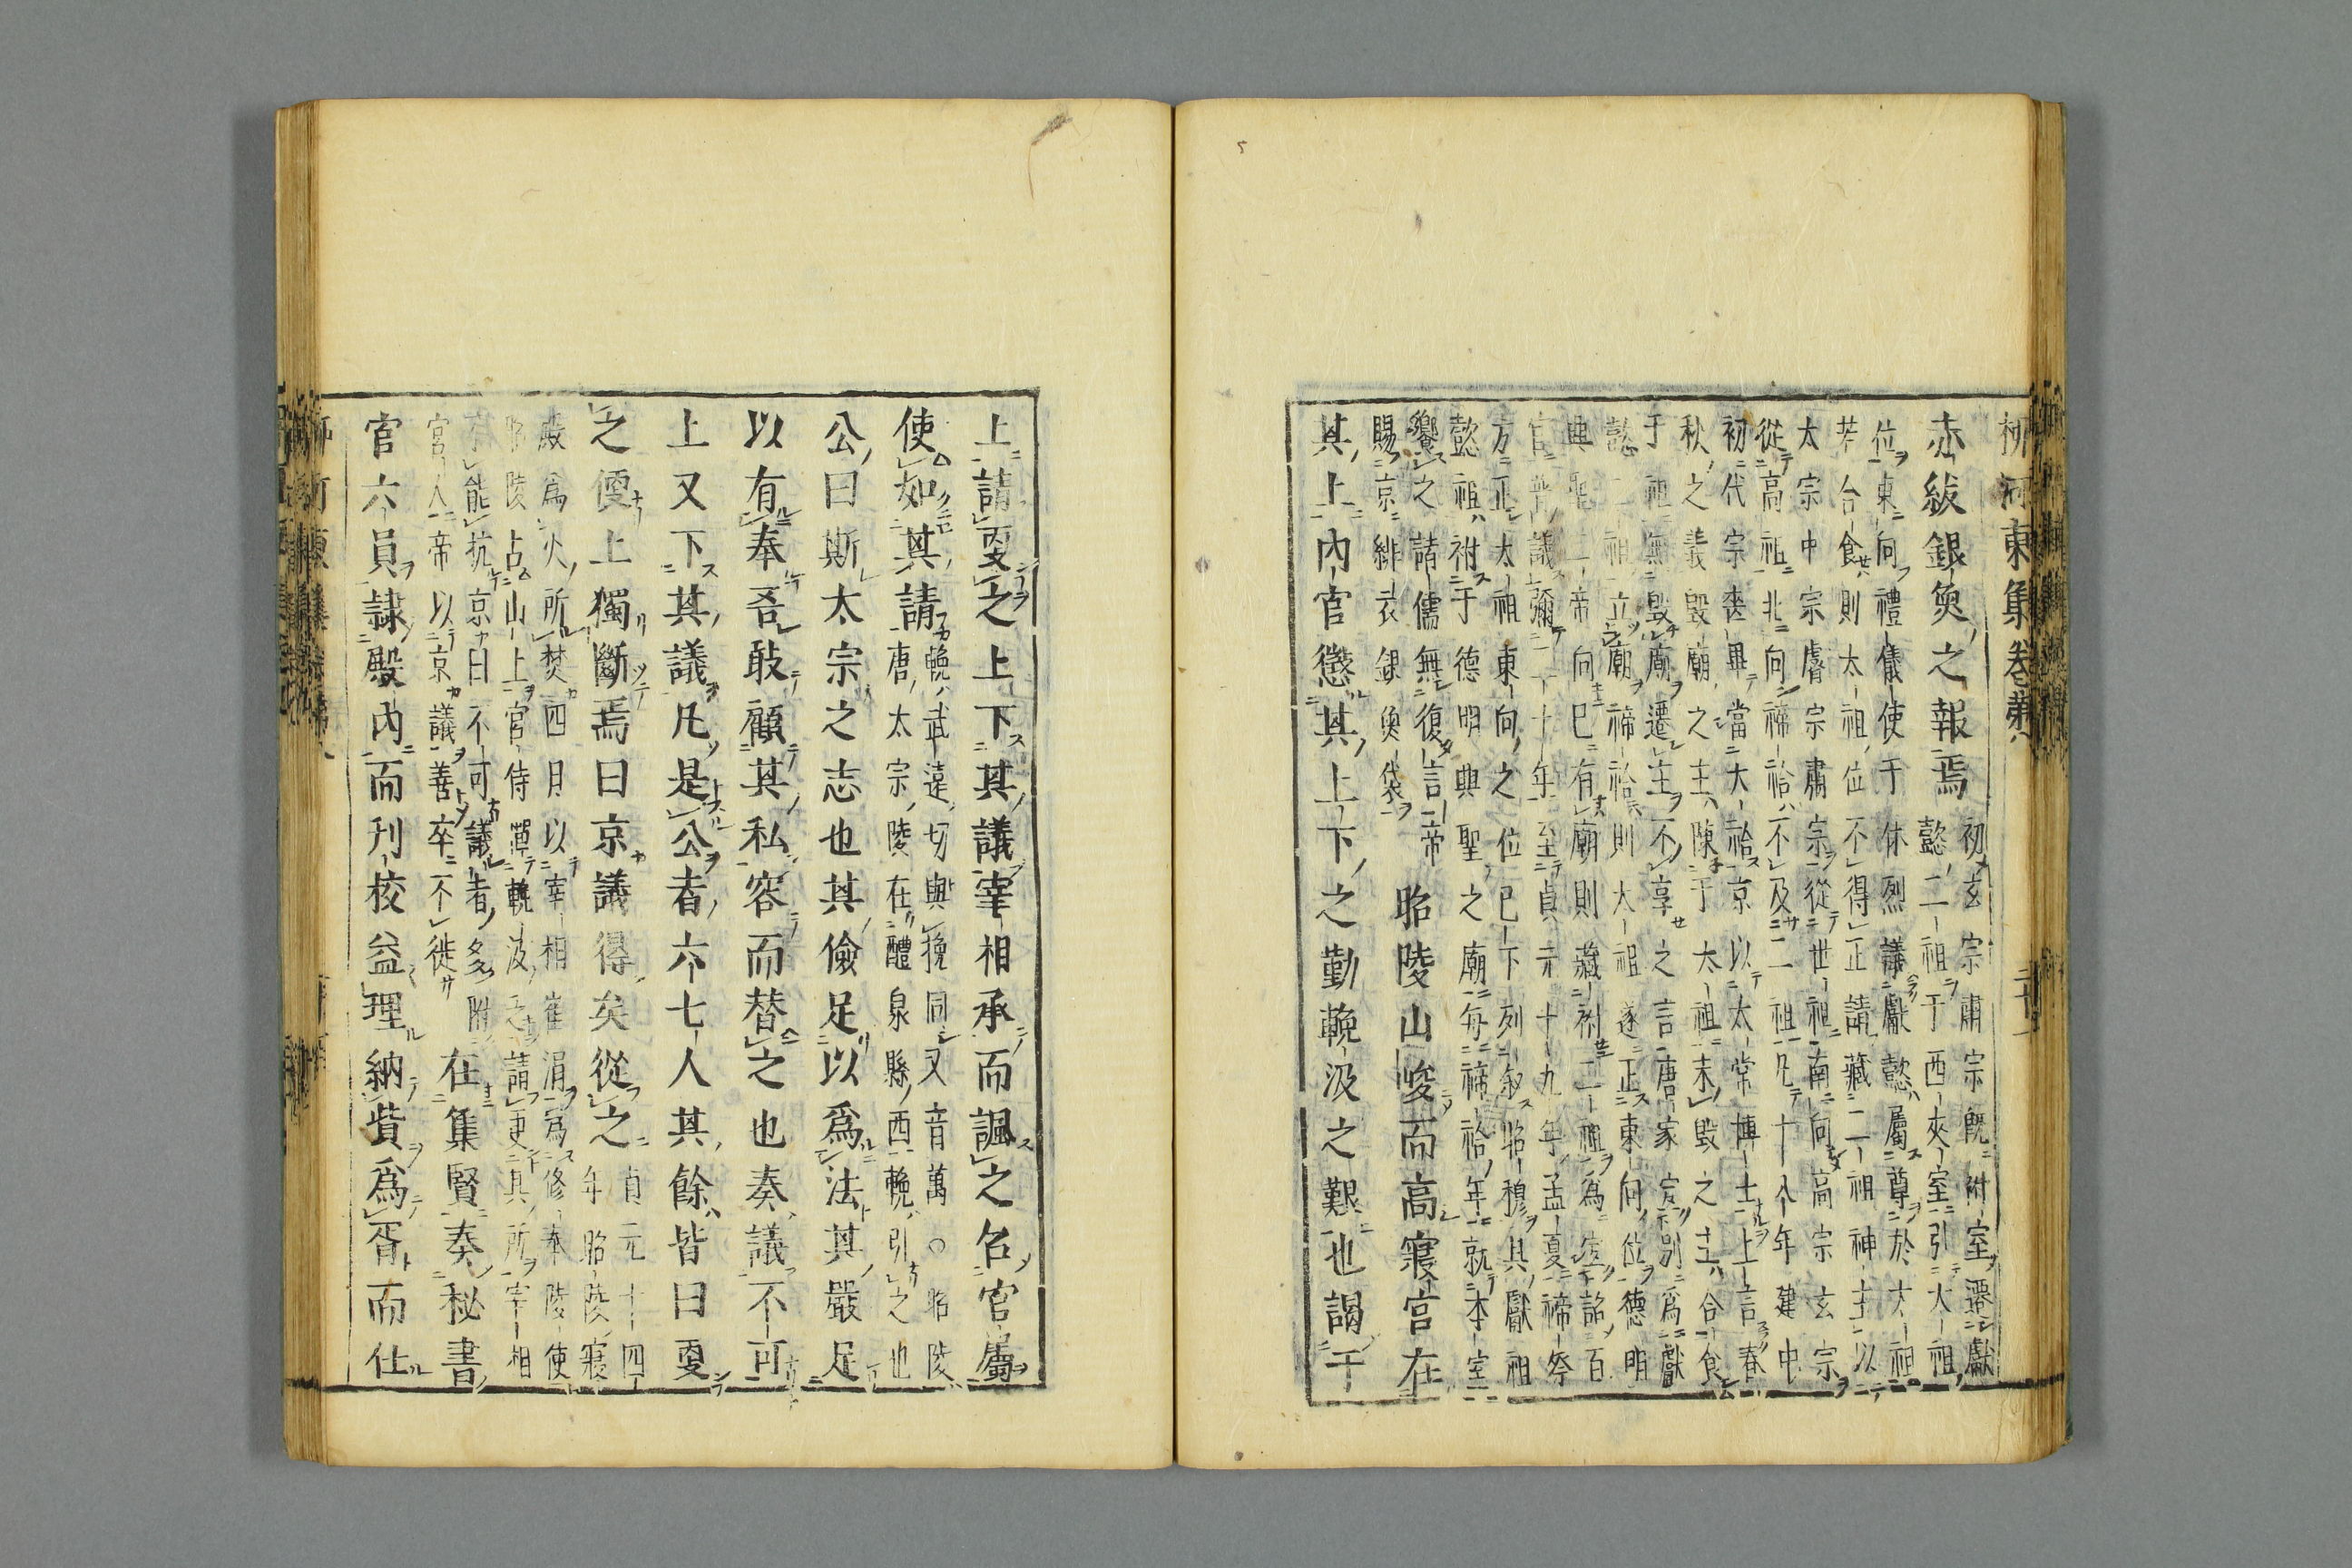 柳河東集卷第八
赤紱銀魚之報焉
初玄宗肅宗既祔室遷獻
懿二祖于西夾室引太祖
位東向禮儀使于休烈議獻懿屬尊於太祖
若合食則太祖位不得正請藏二祖神主以
太宗中宗睿宗肅宗從世祖南向高宗玄宗
從高祖北向禘祫不及二祖凡十八年建中
初代宗喪畢當大祫京以太常博士上言春
秋之義毀廟之主陳于太祖未毀之主合食
于祖無毀廟遷主不享之言唐家宜別爲獻
懿二祖立廟禘祫則太祖遂正東向位德明
興聖二帝向已有廟則藏祔二祖爲宜詔百
官普議彌二十年至貞元十九年孟夏禘祭
方正太祖東向之位已下列敘昭穆其獻祖
懿祖祔于德明興聖之廟每禘祫年就本室
饗之諸儒無復言帝
賜京緋衣銀魚袋
昭陵山峻而高寢宮在
其上內官懲其上下之勤輓汲之艱也謁于
上請更之上下其議宰相承而諷之召官屬
使如其請
輓武遠切與挽同又音萬○昭陵
唐太宗陵在醴泉縣西輓引之也
公曰斯太宗之志也其儉足以爲法其嚴足
以有奉吾敢顧其私容而替之也奏議不可
上又下其議凡是公者六七人其餘皆曰更
之便上獨斷焉曰京議得矣從之
貞元十四
年昭陵寢
殿爲火所焚四月以宰相崔損爲修奉陵使
昭陵占山上官侍憚輓汲之請更其所宰相
不能抗京曰不可議者多附
宮人帝以京議善卒不徙
在集賢奏秘書
官六員隸殿內而刊校益理納貲爲胥而仕